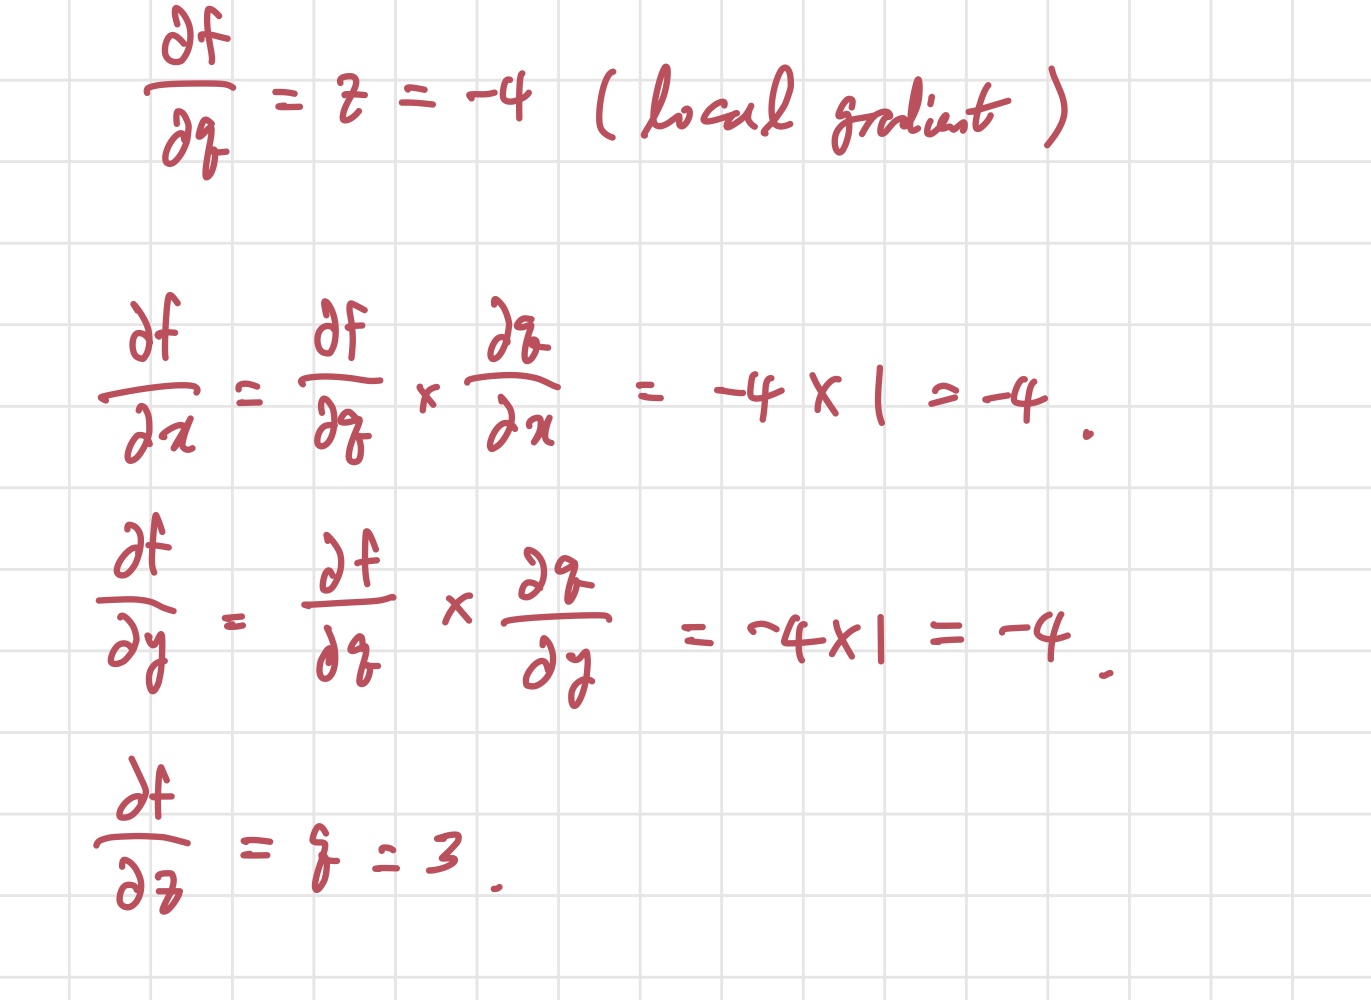 ∂f/∂q = z = -4 (local gradient)
∂f/∂x = ∂f/∂q × ∂q/∂x = -4 × 1 = -4.
∂f/∂y = ∂f/∂q × ∂q/∂y = -4 × 1 = -4.
∂f/∂z = q = 3.